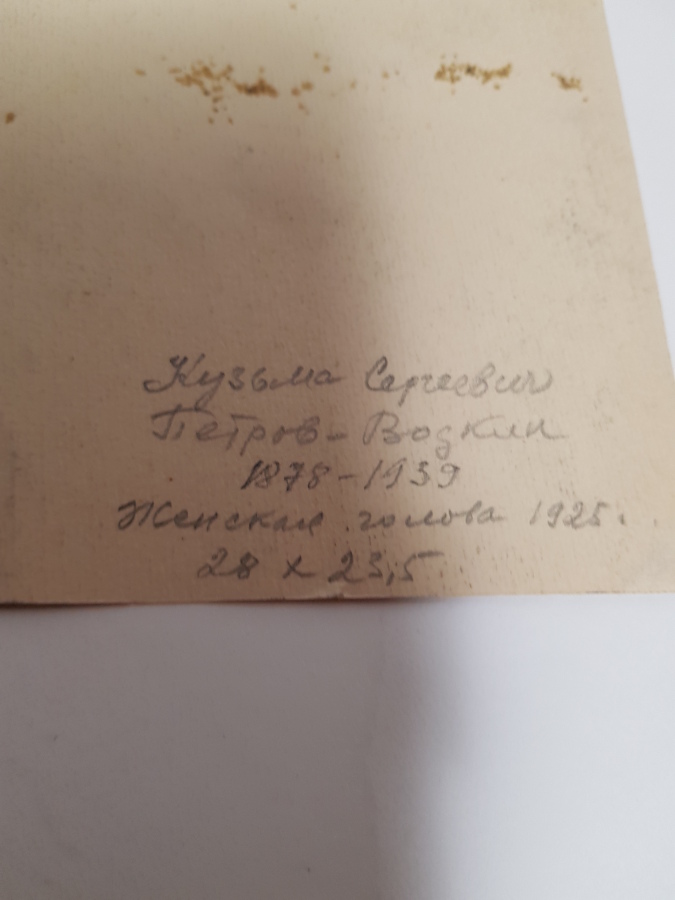 Кузьма Сергеевич
Петров-Водкин
1878-1939
Женская голова 1925.
28 х 23,5